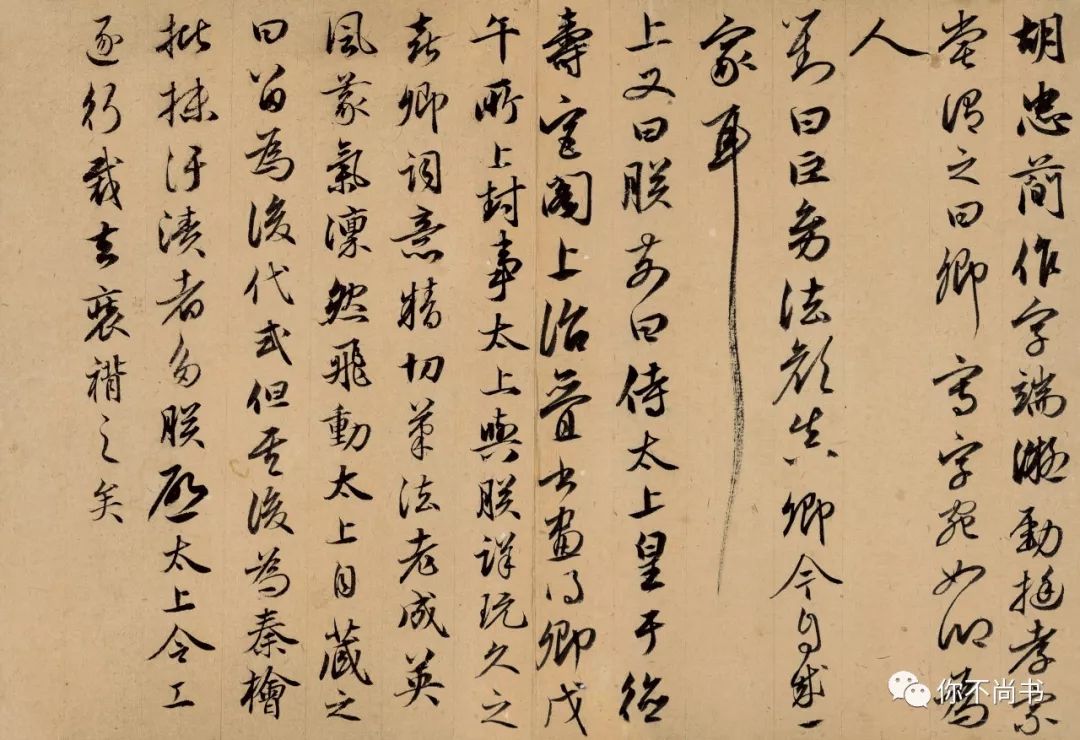 胡忠簡作字端凝勁挺孝宗
嘗謂之曰卿寫字宛如其為
人
對曰臣法顏真卿今自成一
家耳
上又曰朕前日侍太上皇于德
壽宮閣上治疊書畫得卿戊
午所上封事太上與朕詳玩久之
喜卿詞意精切筆法老成英
風義氣凜然飛動太上自藏之
曰留為後代式但其後為秦檜
批抹汙瀆者多朕啟太上令工
逐行裁去裱褙之矣
你不尚书